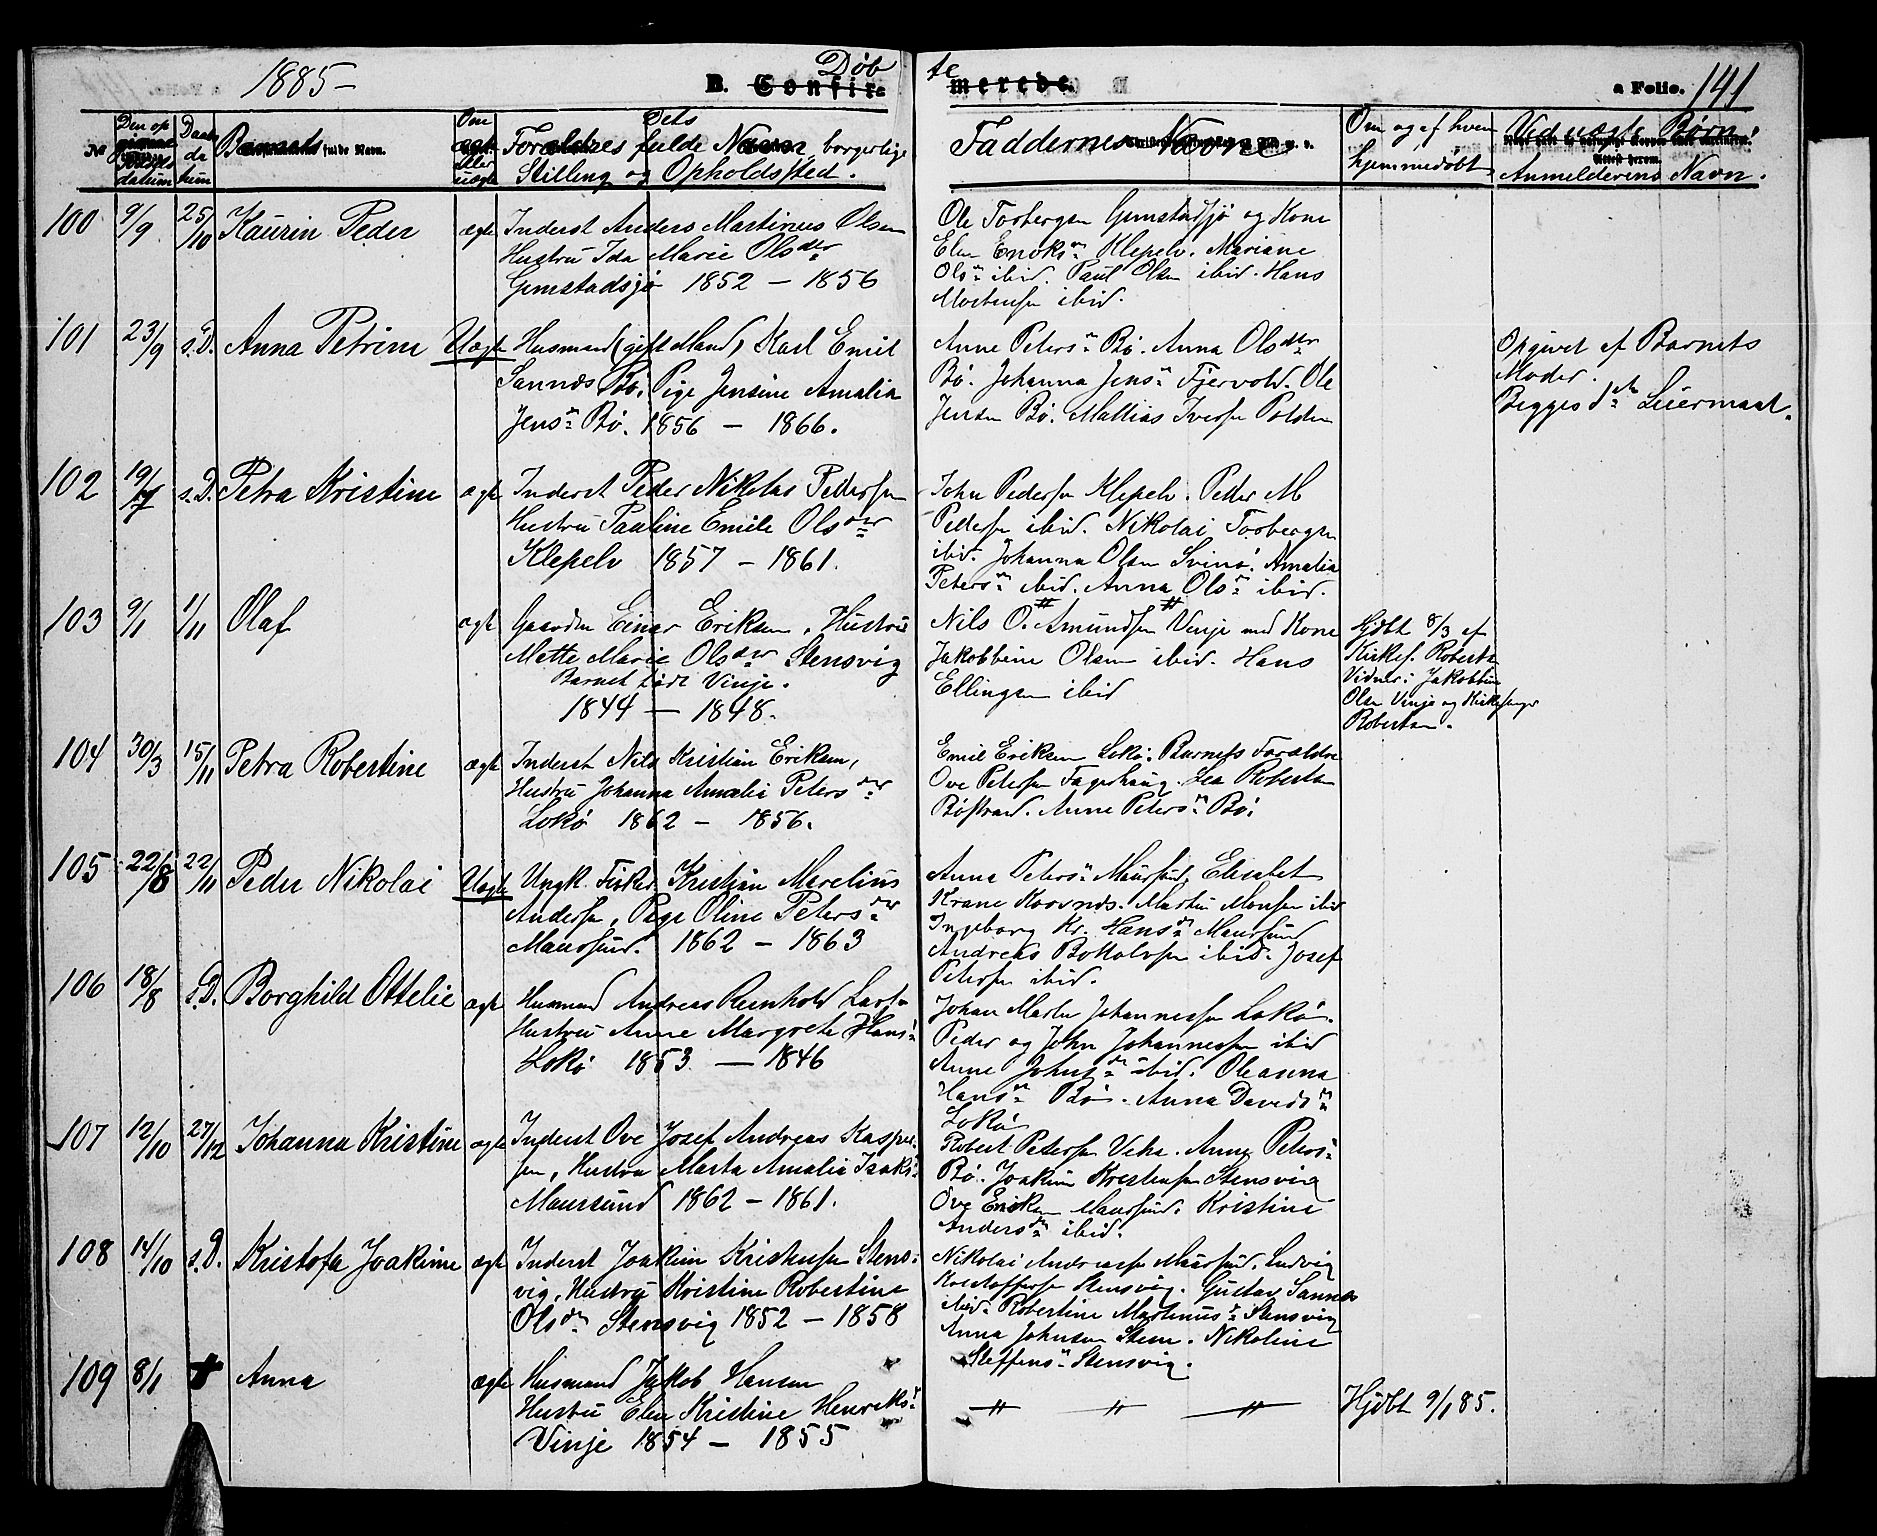 1885 –
B. Confir-
Døb
te
merede.
a Folio. 141
No
Den op
datum
Daabs
da
tum
Barnets fulde Navn.
Om
ægte
eller
uægte
Forældres fulde Navn, borgerlige
Stilling og Opholdssted.
Faddernes Navne
Om og af hvem
hjemmedøbt
Ved uægte Børn:
Anmelderens Navn.
100 9/9 25/10 Kaurin Peder ægte Inderst Anders Martinus Olsen
Hustru Ida Marie Olsdtr
Grimstadsjø 1852 – 1856
Ole Torbergsen Grimstadsjø og Kone
Elen Enoks Klepelv. Mariane
Ols ibid. Paul Olsen ibid. Hans
Mortensen ibid.
101 23/9 s.D. Anna Petrine Uægte Husmand (gift Mand) Karl Emil
Sannæs Bø. Pige Jensine Amalia
Jens Bø. 1856 – 1866.
Anne Peters Bø. Anna Olsdtr
Bø. Johanna Jens Fjervold. Ole
Jensen Bø. Mathias Iversen Polden
Opgivet af Barnets
Moder.
Begges 1ste Leiermaal.
102 19/7 s.D. Petra Kristine ægte Inderst Peder Nikolai Pedersen
Hustru Pauline Emilie Olsdtr
Klepelv 1857 – 1861.
John Pedersen Klepelv. Peder M
Pedersen ibid. Nikolai Torbergsen
ibid. Johanna Olsen Svinø. Amalia
Peters ibid. Anna Ols ibid.
103 9/1 1/11 Olaf ægte Gaardm Einar Eriksen, Hustru
Mette Marie Olsdtr Stensvig
Barnet født Vinje.
1844 – 1848.
Nils O. Amundsen Vinje med Kone
Jakobbine Olsen ibid. Hans
Ellingsen ibid
Hjdbt 8/3 af
Kirkes. Roberts
Vidner: Jakobbine
Olsen Vinje og Kirkesanger
Robertsen.
104 30/3 15/11 Petra Robertine ægte Inderst Nils Kristian Eriksen,
Hustru Johanna Amalie Petersdtr
Lokø 1862 – 1856.
Emil Eriksen Lokø. Barnets Forældre
Ove Petersen Fagerhaug. Lea Roberts
Bøstrand. Anne Peters Bø.
105 22/8 22/11 Peder Nikolai Uægte Ungk. Fisker Kristian Marelius
Andersen, Pige Oline Petersdtr
Maursund. 1862 – 1863
Anna Peters Maursund, Elisabet
Krane Kovnæs. Martin Monsen ibid
Ingeborg Kr. Hans Maursund
Andreas Bottolvsen ibid. Josef
Petersen ibid.
106 18/8 s.D. Borghild Ottelie ægte Husmand Andreas Reinhold Lars
Hustru Anne Margrete Hans
Lokø 1853 – 1846
Johan Martin Johannessen Lokø.
Peder og John Johannessen ibid
Anne Johns ibid. Oleanna
Hans Bø. Anna Davids
Lokø
107 12/10 27/12 Johanna Kristine ægte Inderst Ove Josef Andreas Kasper-
sen, Hustru Marta Amalie Isaks
Maursund 1862 – 1861.
Robert Petersen Veha. Anne Peters
Bø. Joakim Kristensen Stensvig
Ove Eriksen Maursund. Kristine
Anders ibid.
108 14/10 s.D. Kristofa Joakime ægte Inderst Joakim Kristensen Stens-
vig, Hustru Kristine Robertine
Ols Stensvig 1852 – 1858
Nikolai Andreassen Maursund, Ludvig
Kristoffersen Stensvig. Gustav Sannes
ibid. Robertine Martinus Stensvig
Anna Johnsen Stene. Nikoline
Steffens Stensvig.
109 8/1 Anna ægte Husmand Jakob Hansen
Hustru Elen Kristine Henriks
Vinje 1854 – 1855
〃 〃 〃
Hjdbt 9/1 85.